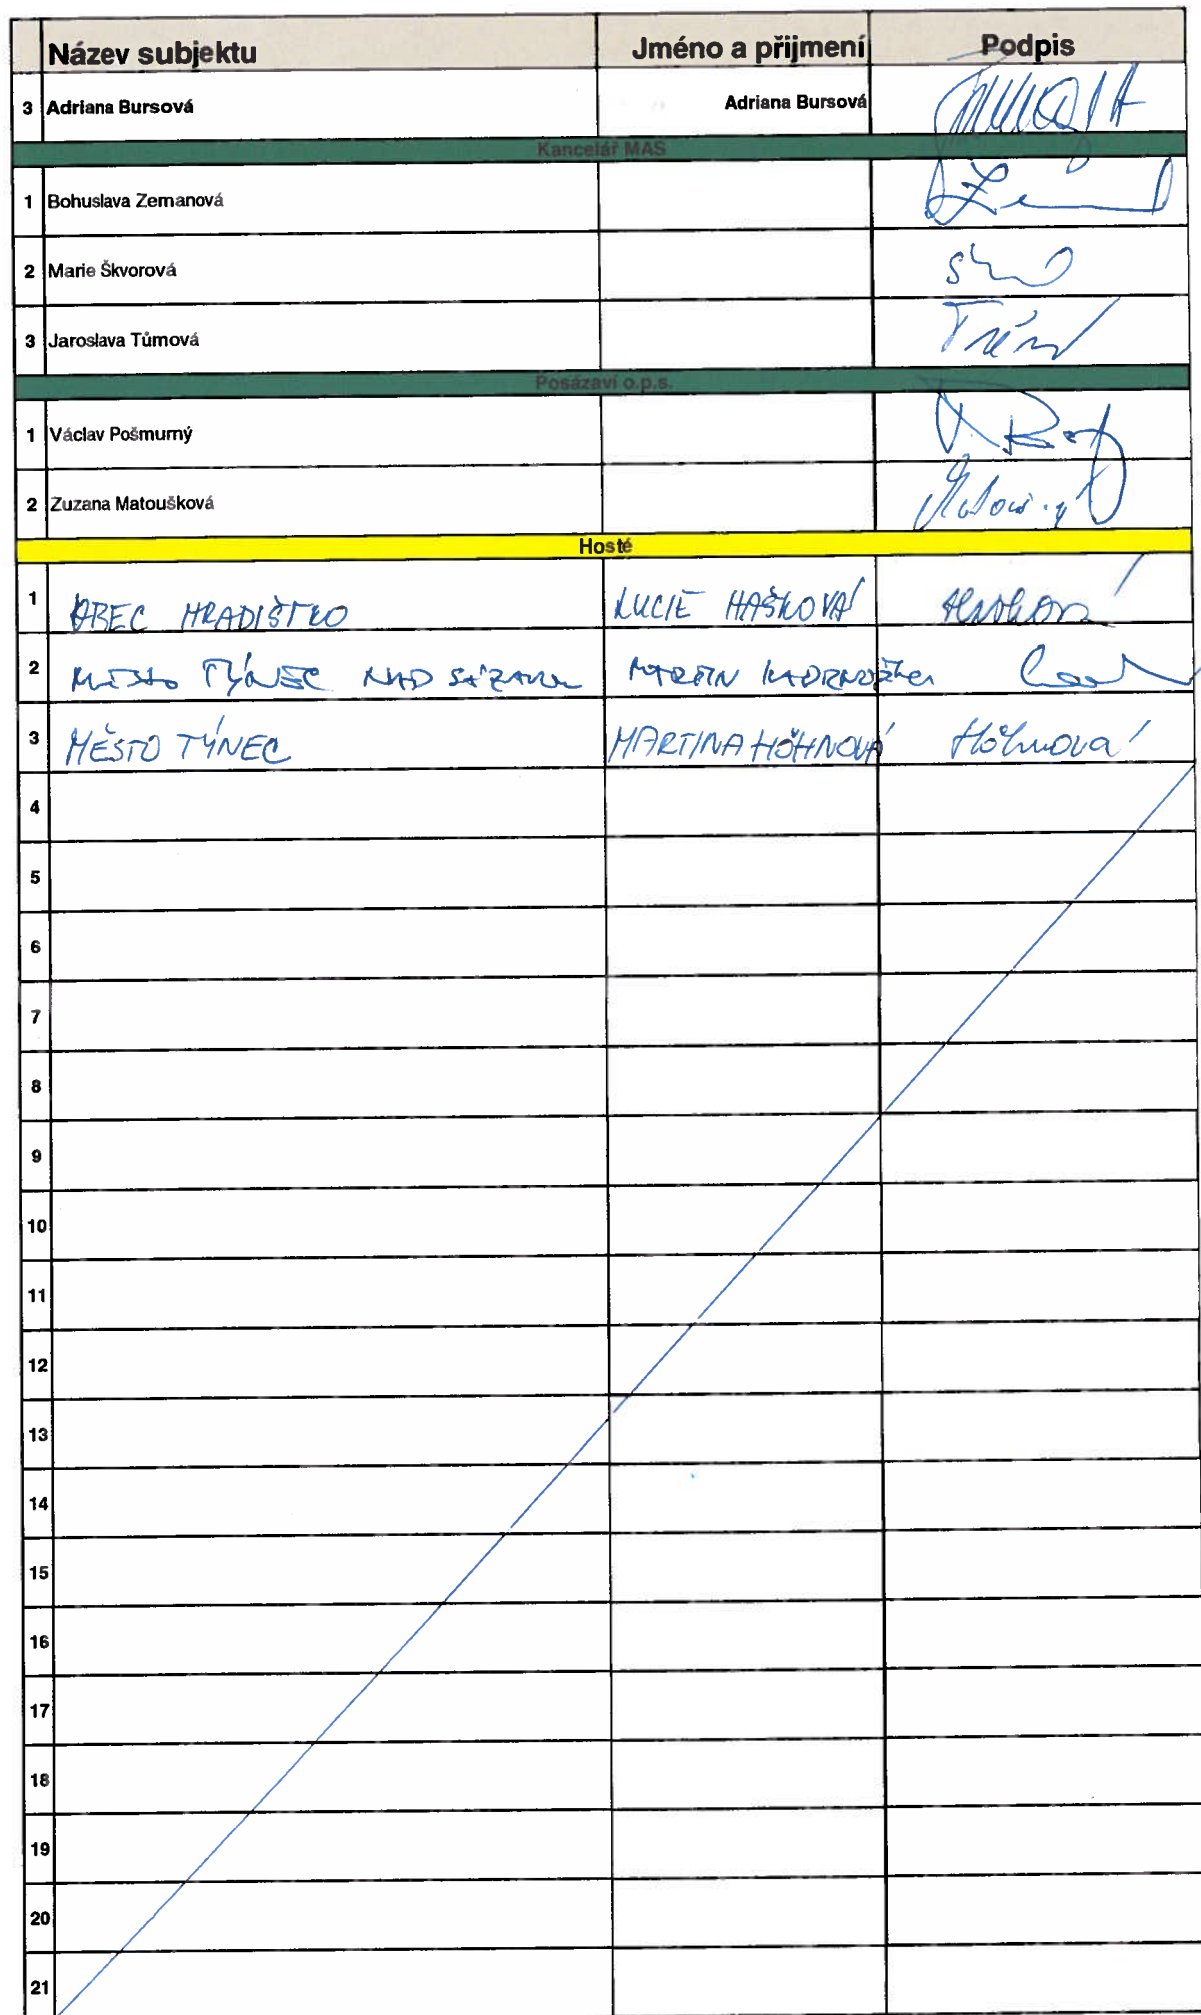 Název subjektu Jméno a přijmení Podpis
3 Adriana Bursová Adriana Bursová
Kancelář MAS
1 Bohuslava Zemanová
2 Marie Škvorová
3 Jaroslava Tůmová
Posázaví o.p.s.
1 Václav Pošmurný
2 Zuzana Matoušková
Hosté
1 OBEC HRADIŠTKO LUCIE HAŠKOVÁ
2 MĚSTO TÝNEC NAD SÁZAVOU MARTIN KADRNOŽKA
3 MĚSTO TÝNEC MARTINA HÖHNOVÁ Höhnová
4
5
6
7
8
9
10
11
12
13
14
15
16
17
18
19
20
21